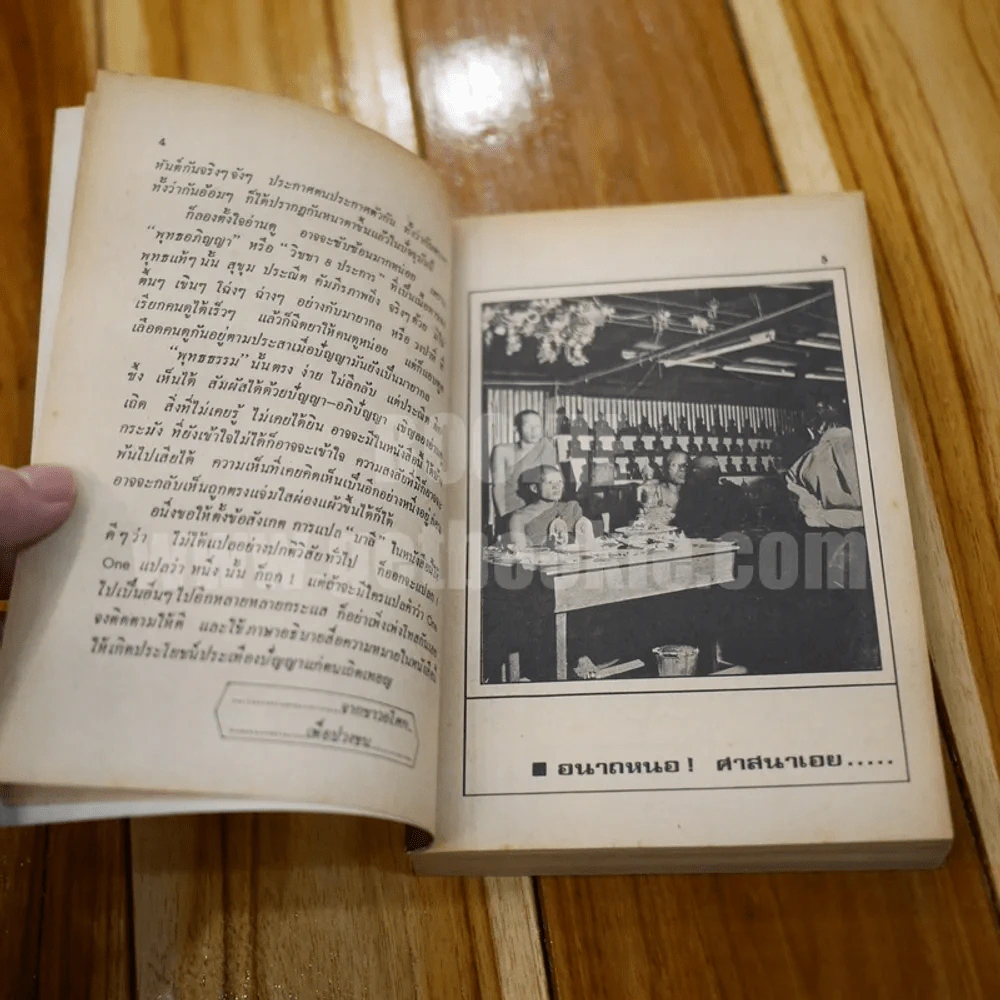 4
หันต์กันจริงๆ จังๆ ประกาศตนประกาศตัวกัน
ทั้งว่ากันอ้อมๆ ก็ได้ปรากฏกันหนาตาขึ้นแล้วในปัจจุบันนี้
ก็ลองตั้งใจอ่านดู อาจจะซับซ้อนมากหน่อย
“พุทธอภิญญา” หรือ “วิชชา 8 ประการ” ที่เป็นเนื้อหา
พุทธแท้ๆ นั้น สุขุม ประณีต คัมภีรภาพยิ่ง จริงๆ ด้วย
ตื้นๆ เขินๆ โฉ่งๆ ฉ่างๆ อย่างกับมายากล หรือ
เรียกคนดูได้เร็วๆ แล้วก็ฉีดยาให้คนดูหน่อย แต่ก็
เลือดคนดูกันอยู่ตามประสาเมื่อปัญญามันยังเป็นมายากล
“พุทธธรรม” นั้นตรง ง่าย ไม่ลึกลับ แต่ประณีต
ซึ้ง เห็นได้ สัมผัสได้ด้วยปัญญา–อภิปัญญา เชิญลอง
เถิด สิ่งที่ไม่เคยรู้ ไม่เคยได้ยิน อาจจะมีในหนังสือนี้ได้บ้าง
กระมัง ที่ยังเข้าใจไม่ได้ก็อาจจะเข้าใจ ความสงสัยที่มีก็อาจจะ
พ้นไปเสียได้ ความเห็นที่เคยคิดเห็นเป็นอีกอย่างหนึ่งอยู่
อาจจะกลับเห็นถูกตรงแจ่มใสผ่องแผ้วขึ้นได้ก็ได้
อนึ่งขอให้ตั้งข้อสังเกต การแปล “บาลี” ในหนังสือนี้ให้
ดีๆ ว่า ไม่ได้แปลอย่างปกติวิสัยทั่วไป ก็ออกจะแปลก !
One แปลว่า หนึ่ง นั้น ก็ถูก ! แต่ถ้าจะมีใครแปลคำว่า One
ไปเป็นอื่นๆ ไปอีกหลายหลายกระแส ก็อย่าเพ่งเพ่งโทสกันเลย
จงติดตามให้ดี และใช้ภาษาอธิบายสื่อความหมายในหนังสือนี้
ให้เกิดประโยชน์ประเทืองปัญญาแก่ตนเถิดเทอญ
จากชาวอโศก
เพื่อปวงชน
5
■ อนาถหนอ ! ศาสนาเอย.....